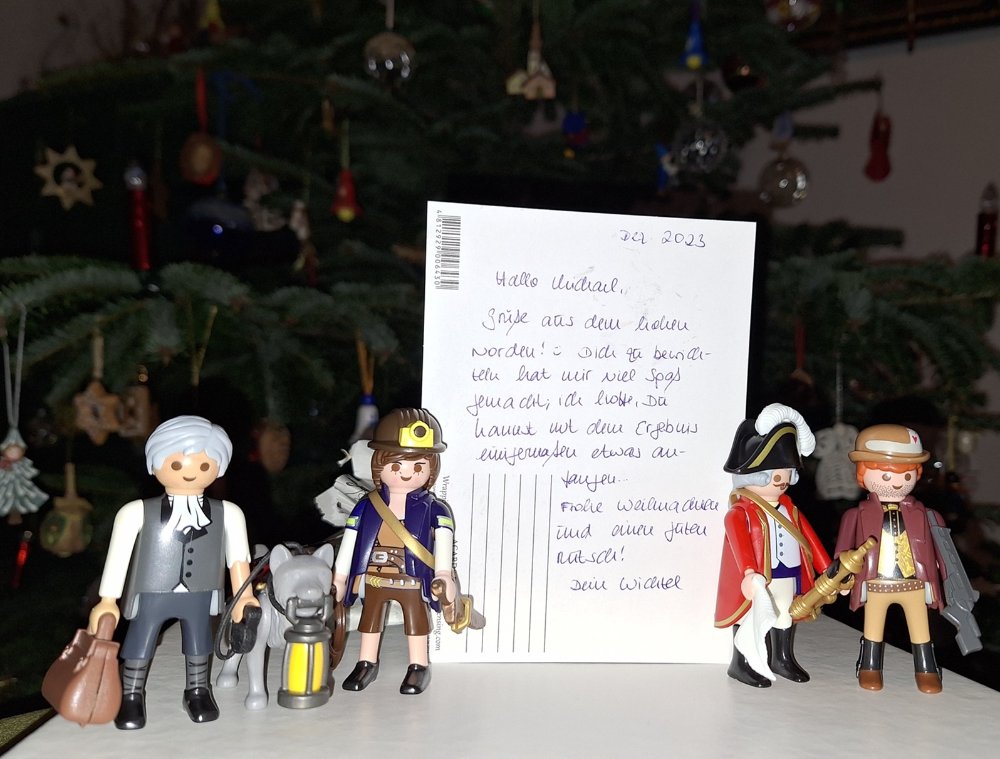 4812929006430
Dez. 2023
Hallo Michael,
Grüße aus dem hohen
Norden! Dich zu bewich-
teln hat mir viel Spaß
gemacht, ich hoffe, Du
kannst mit dem Ergebnis
einigermaßen etwas an-
fangen...
Frohe Weihnachten
und einen guten
Rutsch!
Dein Wichtel